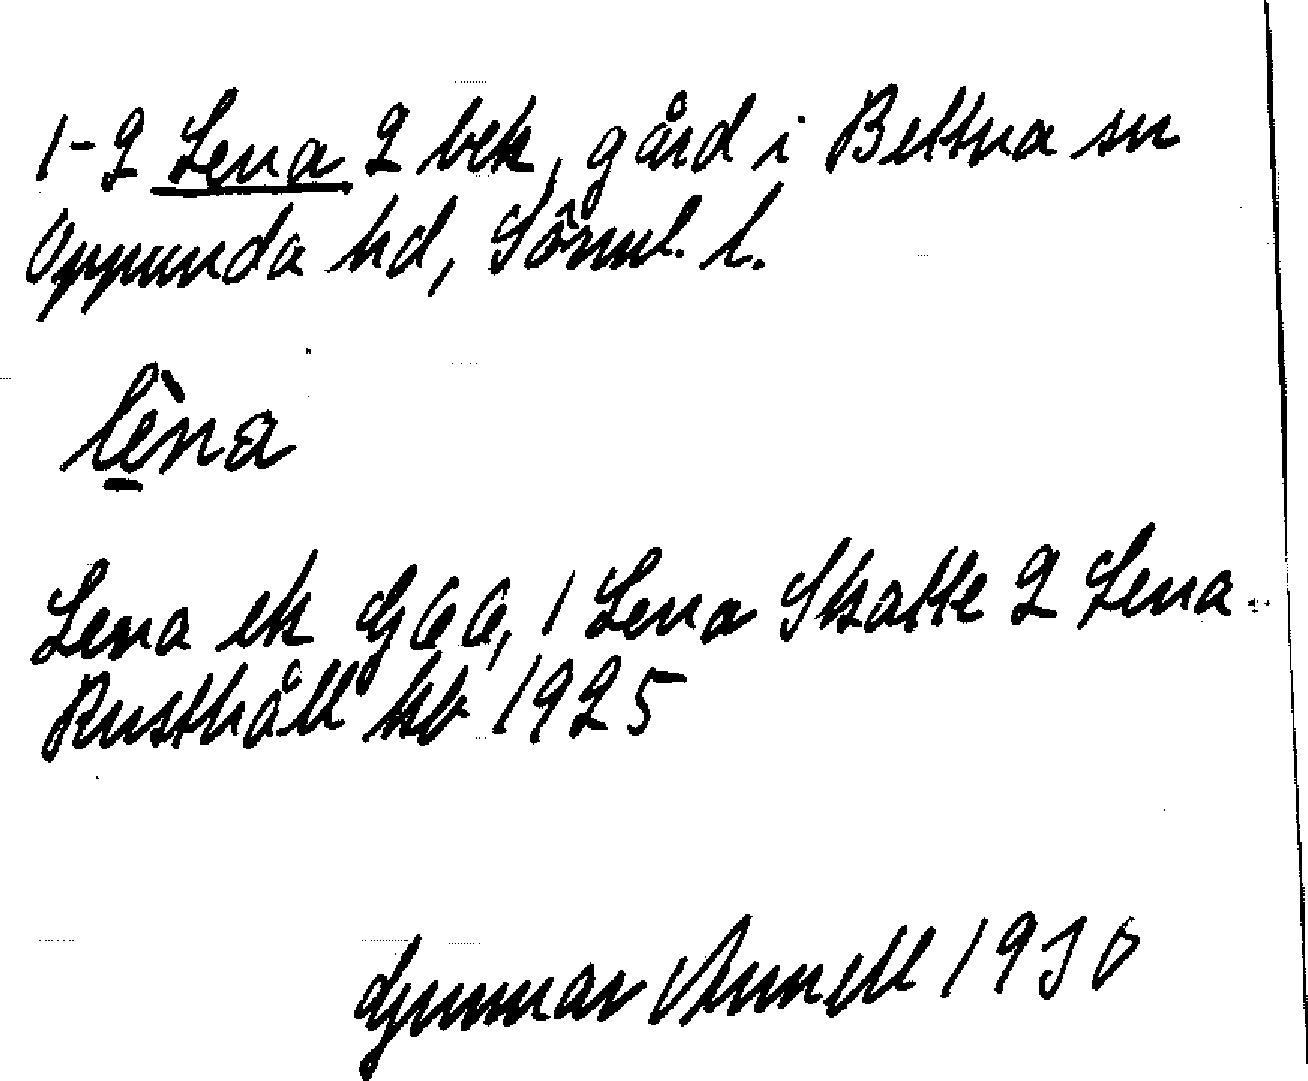 1-2 Lena 2 bek, gård i Bettna sn
Oppunda hd, Sörml. l.
lèna
Lena ek G66, 1 Lena Skatte 2 Lena
Rusthåll kb 1925
Gunnar 1930